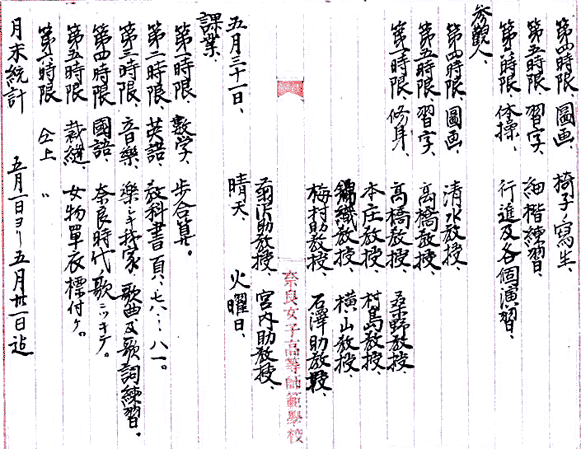 第四時限、圖画、椅子ノ寫生、
第五時限、習字、細楷練習、
第六時限、体操、行進及各個演習、
参觀人、
第四時限、圖画、清水教授、
第五時限、習字、高橋教授、桑野教授、
第一時限、修身、高橋教授、村島教授、
本庄教授、横山教授、
錦織教授、石澤助教授、
梅村助教授、宮内助教授、
菊沢助教授、
奈良女子高等師範學校
五月三十一日、晴天、火曜日、
課業、
第一時限、數学、歩合算。
第二時限、英語、教科書頁、七八…八一。
第三時限、音樂、樂シキ我家、歌曲及歌詞練習。
第四時限、國語、奈良時代ノ歌ニツキテ。
第五時限、裁縫、女物單衣標付ケ。
第六時限、仝上、〃
月末統計 五月一日ヨリ五月卅一日迠